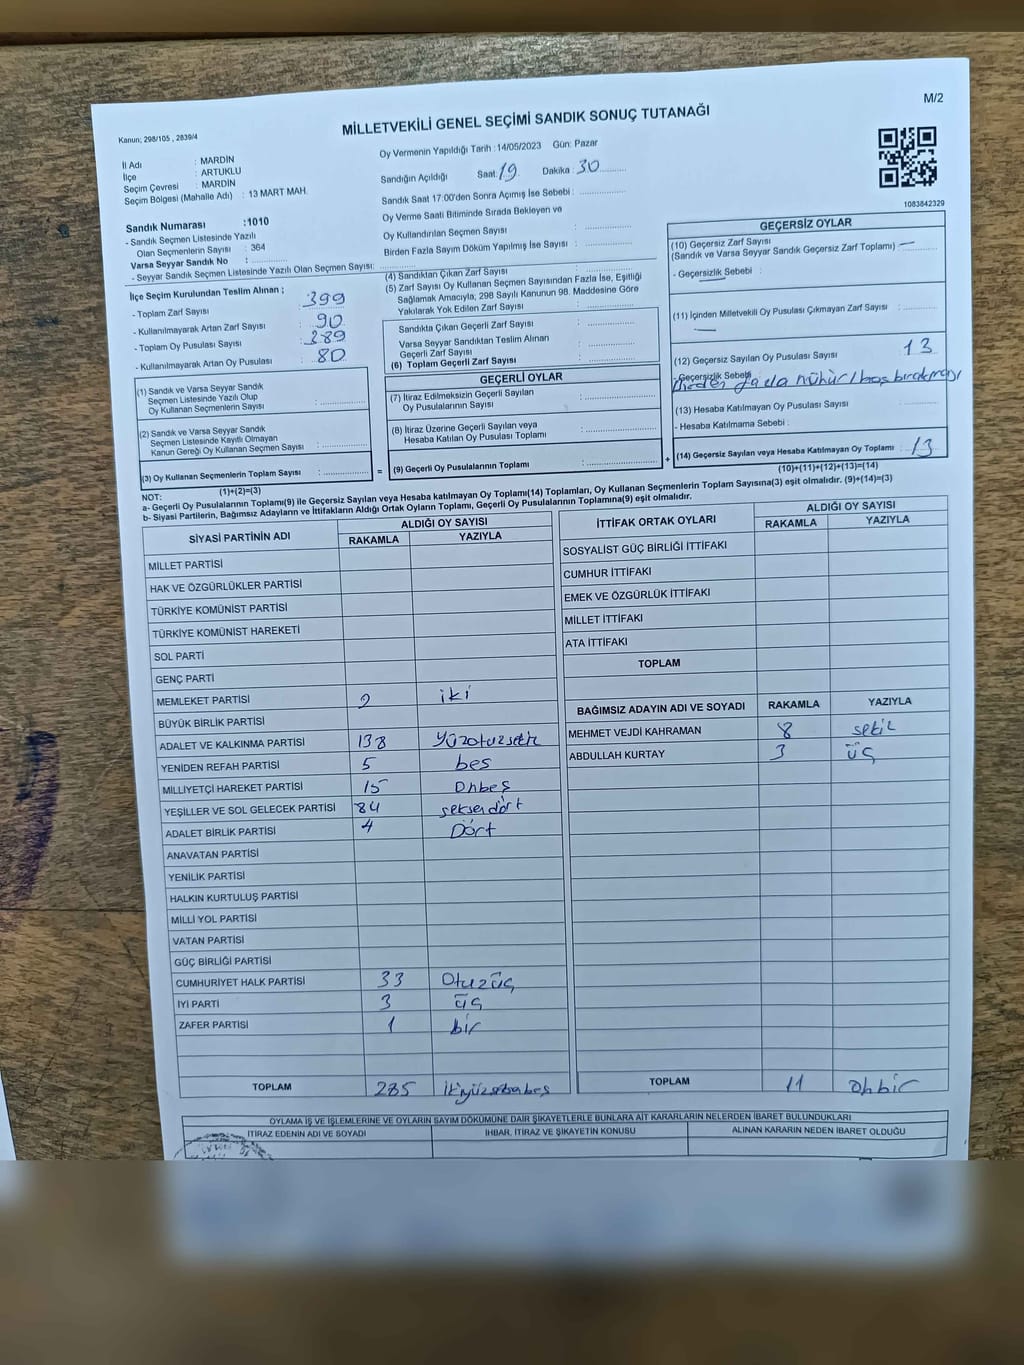 M/2
MİLLETVEKİLİ GENEL SEÇİMİ SANDIK SONUÇ TUTANAĞI
Kanun; 298/105 , 2839/4
İl Adı : MARDİN
İlçe : ARTUKLU
Seçim Çevresi : MARDİN
Seçim Bölgesi (Mahalle Adı) : 13 MART MAH.
Oy Vermenin Yapıldığı Tarih :14/05/2023 Gün: Pazar
Sandığın Açıldığı Saat: 19 Dakika : 30
Sandık Saat 17:00'den Sonra Açımış İse Sebebi :
Oy Verme Saati Bitiminde Sırada Bekleyen ve
Oy Kullandırılan Seçmen Sayısı :
Birden Fazla Sayım Döküm Yapılmış İse Sayısı :
1083842329
Sandık Numarası :1010
- Sandık Seçmen Listesinde Yazılı
Olan Seçmenlerin Sayısı : 364
Varsa Seyyar Sandık No :
- Seyyar Sandık Seçmen Listesinde Yazılı Olan Seçmen Sayısı:
İlçe Seçim Kurulundan Teslim Alınan ;
- Toplam Zarf Sayısı : 399
- Kullanılmayarak Artan Zarf Sayısı : 90
- Toplam Oy Pusulası Sayısı : 389
- Kullanılmayarak Artan Oy Pusulası : 80
(1) Sandık ve Varsa Seyyar Sandık
Seçmen Listesinde Yazılı Olup
Oy Kullanan Seçmenlerin Sayısı :
(2) Sandık ve Varsa Seyyar Sandık
Seçmen Listesinde Kayıtlı Olmayan
Kanun Gereği Oy Kullanan Seçmen Sayısı :
(3) Oy Kullanan Seçmenlerin Toplam Sayısı : =
(1)+(2)=(3)
(4) Sandıktan Çıkan Zarf Sayısı :
(5) Zarf Sayısı Oy Kullanan Seçmen Sayısından Fazla İse, Eşitliği
Sağlamak Amacıyla, 298 Sayılı Kanunun 98. Maddesine Göre
Yakılarak Yok Edilen Zarf Sayısı :
Sandıkta Çıkan Geçerli Zarf Sayısı :
Varsa Seyyar Sandıktan Teslim Alınan
Geçerli Zarf Sayısı :
(6) Toplam Geçerli Zarf Sayısı :
GEÇERLİ OYLAR
(7) İtiraz Edilmeksizin Geçerli Sayılan
Oy Pusulalarının Sayısı :
(8) İtiraz Üzerine Geçerli Sayılan veya
Hesaba Katılan Oy Pusulası Toplamı :
(9) Geçerli Oy Pusulalarının Toplamı : +
GEÇERSİZ OYLAR
(10) Geçersiz Zarf Sayısı
(Sandık ve Varsa Seyyar Sandık Geçersiz Zarf Toplamı) : —
- Geçersizlik Sebebi :
(11) İçinden Milletvekili Oy Pusulası Çıkmayan Zarf Sayısı :
(12) Geçersiz Sayılan Oy Pusulası Sayısı : 13
- Geçersizlik Sebebi
Birden fazla mühür / boş bırakması
(13) Hesaba Katılmayan Oy Pusulası Sayısı :
- Hesaba Katılmama Sebebi :
(14) Geçersiz Sayılan veya Hesaba Katılmayan Oy Toplamı : 13
(10)+(11)+(12)+(13)=(14)
NOT:
a- Geçerli Oy Pusulalarının Toplamı(9) ile Geçersiz Sayılan veya Hesaba katılmayan Oy Toplamı(14) Toplamları, Oy Kullanan Seçmenlerin Toplam Sayısına(3) eşit olmalıdır. (9)+(14)=(3)
b- Siyasi Partilerin, Bağımsız Adayların ve İttifakların Aldığı Ortak Oyların Toplamı, Geçerli Oy Pusulalarının Toplamına(9) eşit olmalıdır.
SİYASİ PARTİNİN ADI ALDIĞI OY SAYISI
RAKAMLA YAZIYLA
MİLLET PARTİSİ
HAK VE ÖZGÜRLÜKLER PARTİSİ
TÜRKİYE KOMÜNİST PARTİSİ
TÜRKİYE KOMÜNİST HAREKETİ
SOL PARTİ
GENÇ PARTİ
MEMLEKET PARTİSİ 2 iki
BÜYÜK BİRLİK PARTİSİ
ADALET VE KALKINMA PARTİSİ 138 Yüzotuzsekiz
YENİDEN REFAH PARTİSİ 5 beş
MİLLİYETÇİ HAREKET PARTİSİ 15 Onbeş
YEŞİLLER VE SOL GELECEK PARTİSİ 84 seksendört
ADALET BİRLİK PARTİSİ 4 Dört
ANAVATAN PARTİSİ
YENİLİK PARTİSİ
HALKIN KURTULUŞ PARTİSİ
MİLLİ YOL PARTİSİ
VATAN PARTİSİ
GÜÇ BİRLİĞİ PARTİSİ
CUMHURİYET HALK PARTİSİ 33 Otuzüç
İYİ PARTİ 3 üç
ZAFER PARTİSİ 1 bir
TOPLAM 285 İkiyüzseksenbeş
İTTİFAK ORTAK OYLARI ALDIĞI OY SAYISI
RAKAMLA YAZIYLA
SOSYALİST GÜÇ BİRLİĞİ İTTİFAKI
CUMHUR İTTİFAKI
EMEK VE ÖZGÜRLÜK İTTİFAKI
MİLLET İTTİFAKI
ATA İTTİFAKI
TOPLAM
BAĞIMSIZ ADAYIN ADI VE SOYADI RAKAMLA YAZIYLA
MEHMET VEJDİ KAHRAMAN 8 sekiz
ABDULLAH KURTAY 3 üç
TOPLAM 11 Onbir
OYLAMA İŞ VE İŞLEMLERİNE VE OYLARIN SAYIM DÖKÜMÜNE DAİR ŞİKAYETLERLE BUNLARA AİT KARARLARIN NELERDEN İBARET BULUNDUKLARI
İTİRAZ EDENİN ADI VE SOYADI İHBAR, İTİRAZ VE ŞİKAYETİN KONUSU ALINAN KARARIN NEDEN İBARET OLDUĞU